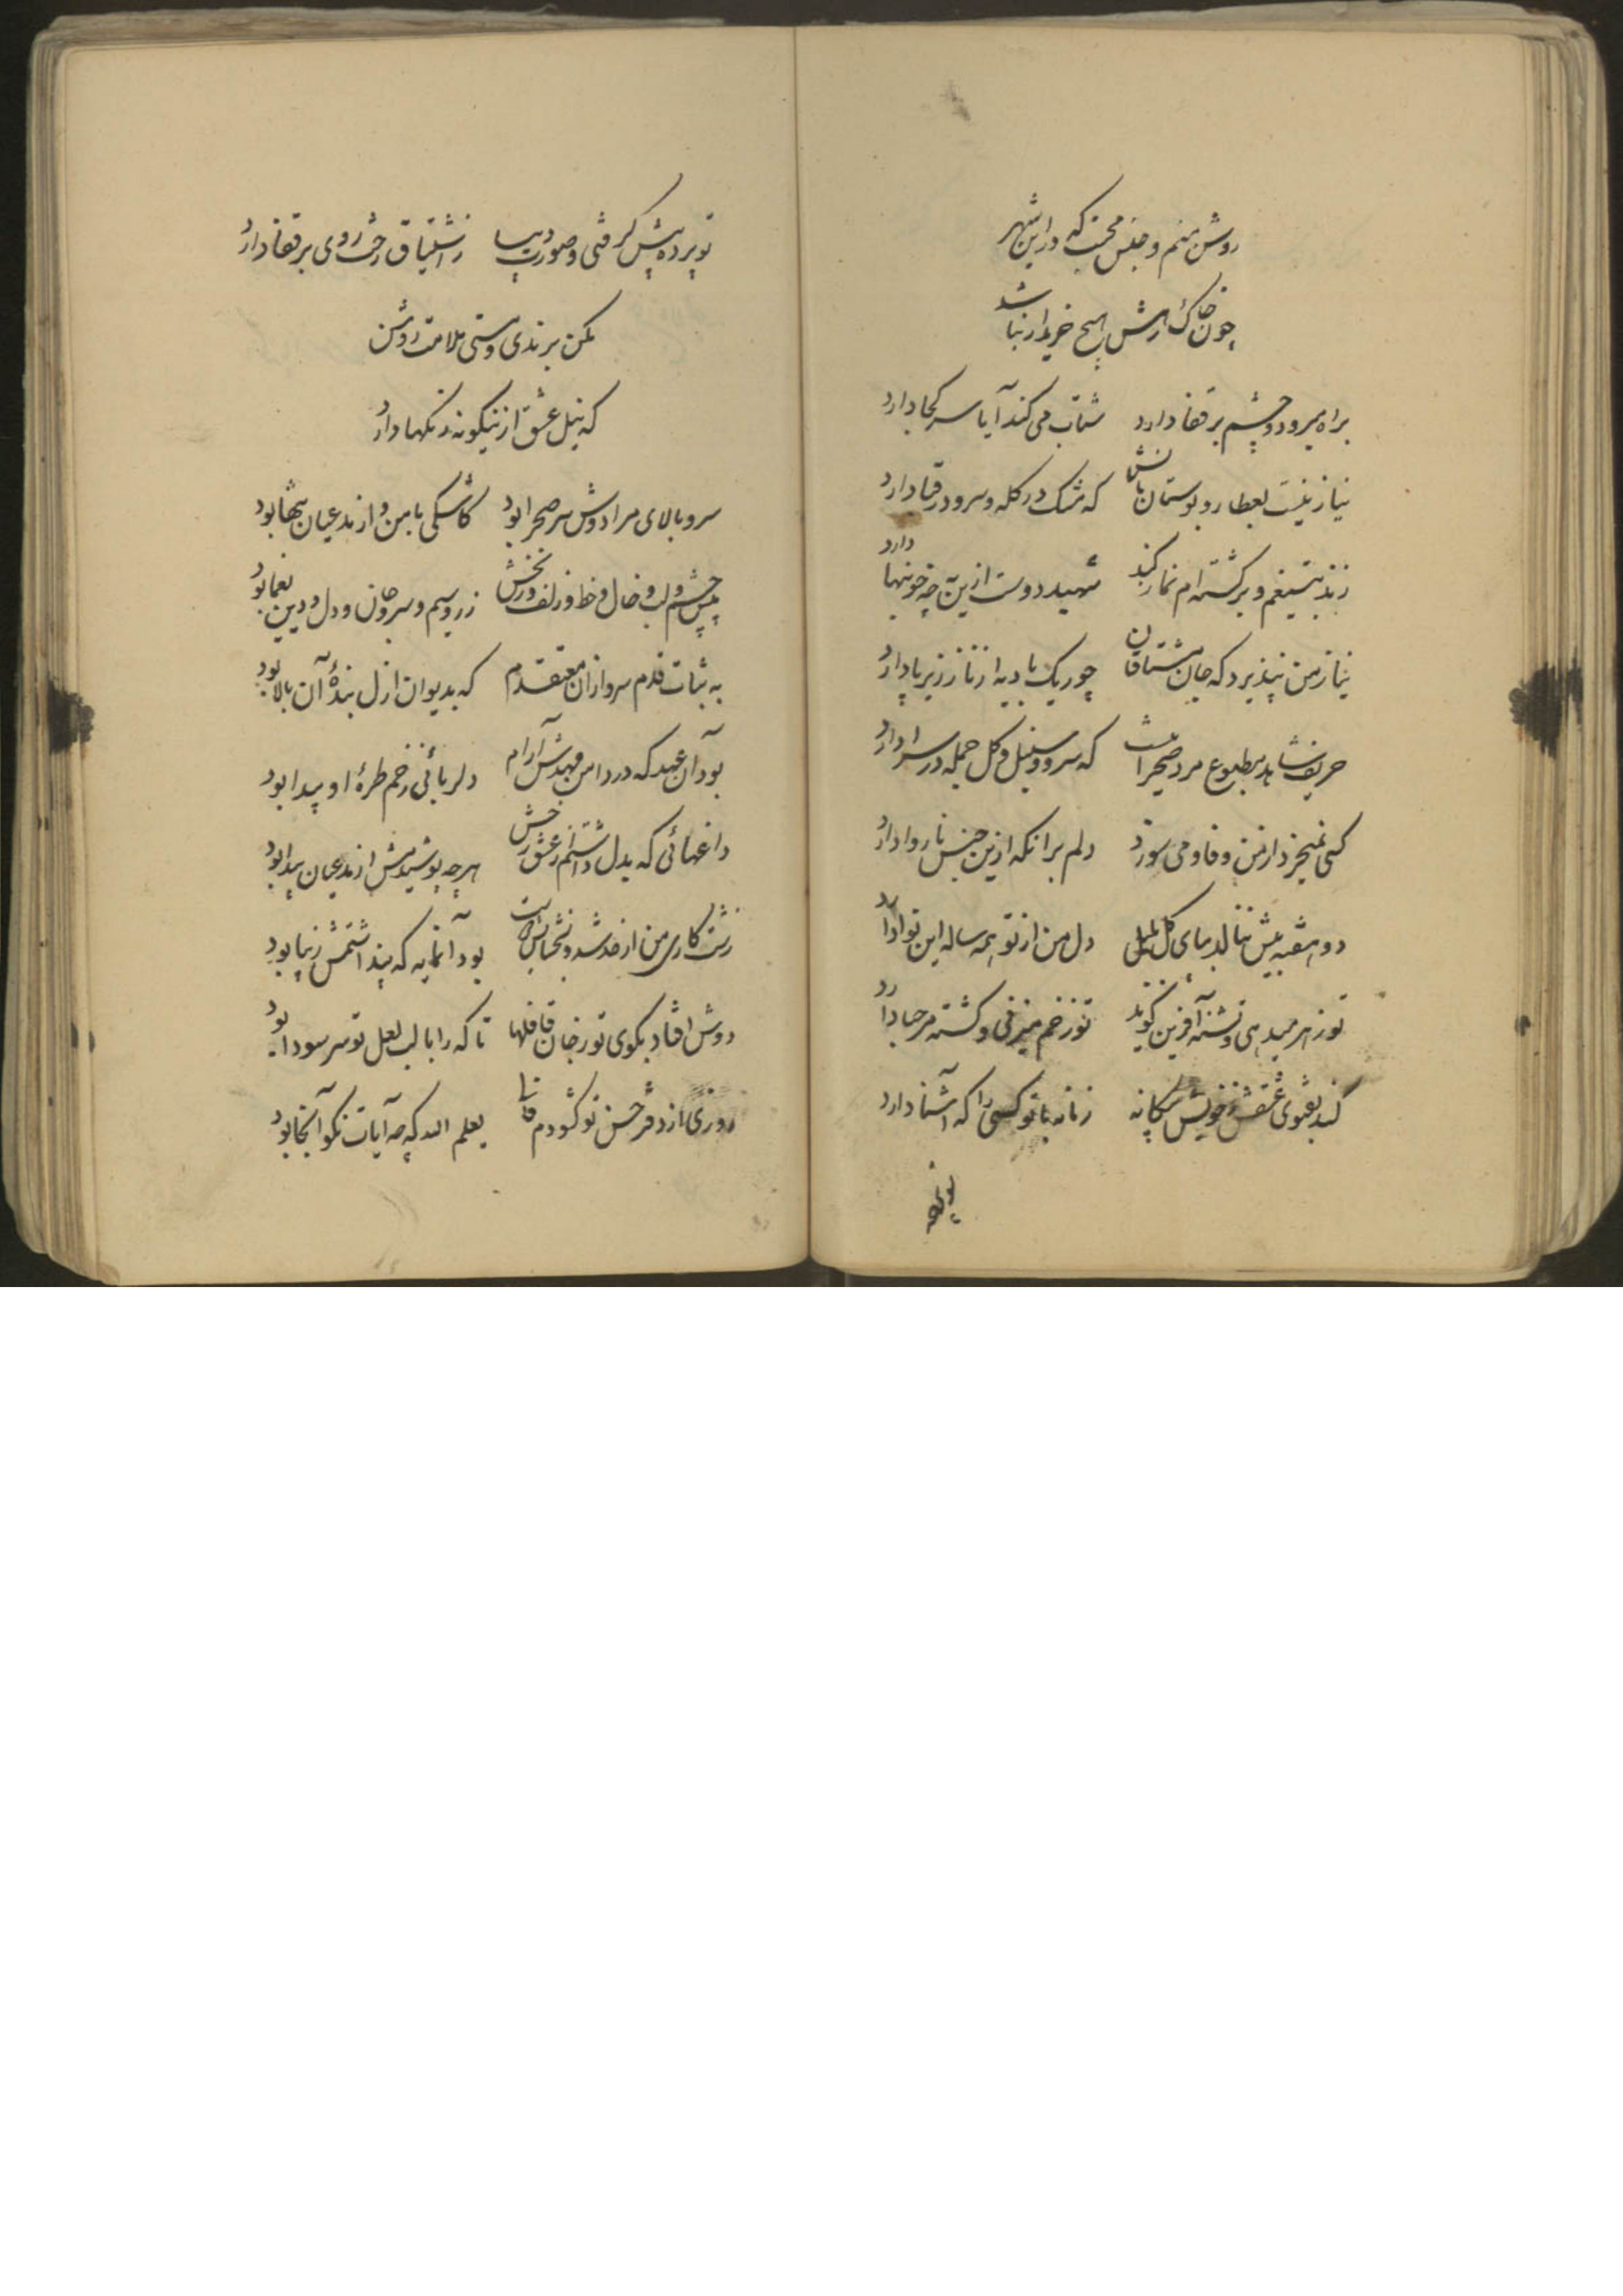 روشن منم و جنس محبت که در این شهر
چون خاک رهش هیچ خریدار نباشد
براه میرود و چشم بر قفا دارد شتاب می کند آیا سر کجا دارد
نیاز نیست بعطار و بوستان بانش که مشک در کله و سرو در قبا دارد
زند بتیغم و بر کشته ام نماز کند شهید دوست ازین به چه خونبها دارد
نیاز من نپذیرد که جان مشتاقان چو ریک بادیه از ناز زیر پا دارد
حریف شاهد مطبوع مرد صحرا نیست که سرو و سنبل و گل جمله در سرا دارد
کسی نمیخرد از من وفا و می سوزد دلم برانکه ازین جنس ناروا دارد
دو هفته بیش ننالد بپای گل بلبل دل من از تو همه ساله این نوا دارد
تو زهر میدهی و تشنه آفرین گوید تو زخم میزنی و کشته مرحبا دارد
کند بفتوی عشقش ز خویش بیگانه زمانه با تو کسی را که آشنا دارد
تو پرده
تو پرده پیش گرفتی و صورت دیبا ز اشتیاق رخت روی بر قفا دارد
مکن برندی و مستی ملامت روشن
که نیل عشق ازینگونه رنگها دارد
سرو بالای مرا دوش سر صحرا بود کاشکی با من و از مدعیان تنها بود
پیش چشم و لب و خال و خط و زلف و رخش زر و سیم و سر و جان و دل و دین یغما بود
به ثبات قدم سرو ازان معتقدم که بدیوان ازل بندهٔ آن بالا بود
بود آن عهد که در دامن مهدش آرام دلربائی ز خم طرهٔ او پیدا بود
داغهائی که بدل داشتم از عشق رخش هرچه پوشیدمش از مدعیان پیدا بود
زشت کاری من از حد شد و بخشایش دوست بود آنمایه که پنداشتمش زیبا بود
دوش افتاد بکوی تو ز جان قافلها تا که را با لب لعل تو سر سودا بود
روزی از دفتر حسن تو گشودم فالی یعلم الله که چه آیات نکو آنجا بود